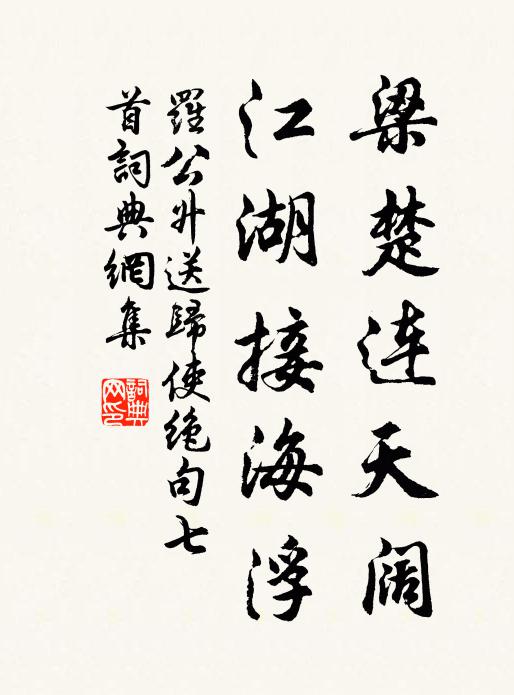 梁楚连天阔
江湖接海浮
羅公外送歸使绝句七
首詞典網集
詞典
网印